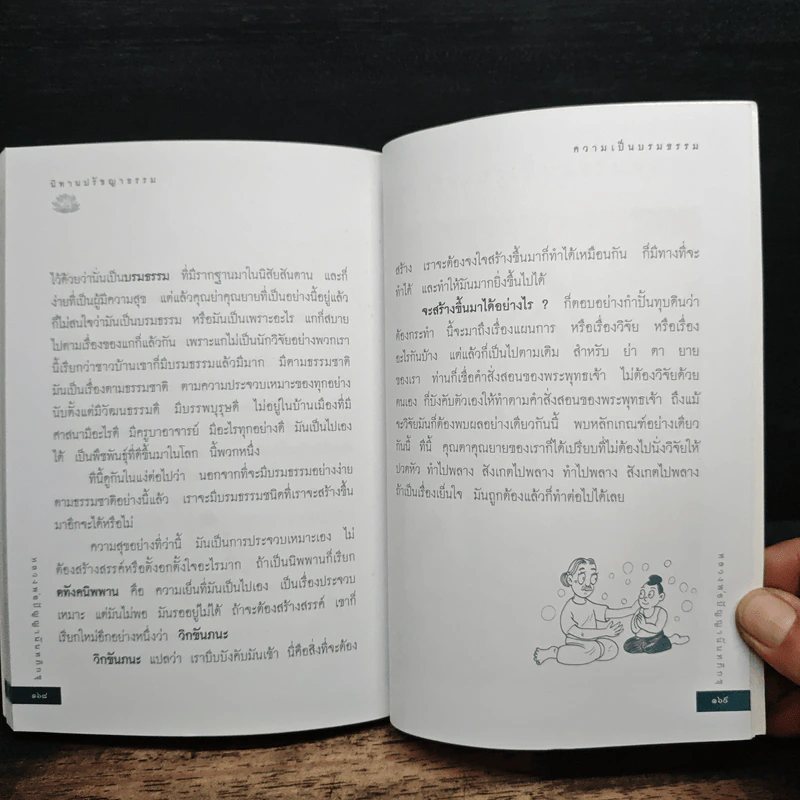 นิทานปรัชญาธรรม
ไว้ด้วยว่านั่นเป็นบรมธรรม ที่มีรากฐานมาในนิสัยสันดาน และก็
ง่ายที่เป็นผู้มีความสุข แต่แล้วคุณย่าคุณยายที่เป็นอย่างนี้อยู่แล้ว
ก็ไม่สนใจว่ามันเป็นบรมธรรม หรือมันเป็นเพราะอะไร แกก็สบาย
ไปตามเรื่องของแกก็แล้วกัน เพราะแกไม่เป็นนักวิจัยอย่างพวกเรา
นี้เรียกว่าชาวบ้านเขาก็มีบรมธรรมแล้วมีมาก มีตามธรรมชาติ
มันเป็นเรื่องตามธรรมชาติ ตามความประจวบเหมาะของทุกอย่าง
นับตั้งแต่มีวัฒนธรรมดี มีบรรพบุรุษดี ไม่อยู่ในบ้านเมืองที่มี
ศาสนามีอะไรดี มีครูบาอาจารย์ มีอะไรทุกอย่างดี มันเป็นไปเอง
ได้ เป็นพืชพันธุ์ที่ดีขึ้นมาในโลก นี้พวกหนึ่ง
ทีนี้ดูกันในแง่ต่อไปว่า นอกจากที่จะมีบรมธรรมอย่างง่าย
ตามธรรมชาติอย่างนี้แล้ว เราจะมีบรมธรรมชนิดที่เราจะสร้างขึ้น
มาอีกจะได้หรือไม่
ความสุขอย่างที่ว่านี้ มันเป็นการประจวบเหมาะเอง ไม่
ต้องสร้างสรรค์หรือตั้งอกตั้งใจอะไรมาก ถ้าเป็นนิพพานก็เรียก
ตทังคนิพพาน คือ ความเย็นที่มันเป็นไปเอง เป็นเรื่องประจวบ
เหมาะ แต่มันไม่พอ มันรออยู่ไม่ได้ ถ้าจะต้องสร้างสรรค์ เขาก็
เรียกใหม่อีกอย่างหนึ่งว่า วิกขัมภนะ
วิกขัมภนะ แปลว่า เราบีบบังคับมันเข้า นี่คือสิ่งที่จะต้อง
หลวงพ่อปัญญานันทภิกขุ
๑๖๘
ความเป็นบรมธรรม
สร้าง เราจะต้องจงใจสร้างขึ้นมาก็ทำได้เหมือนกัน ก็มีทางที่จะ
ทำได้ และทำให้มันมากยิ่งขึ้นไปได้
จะสร้างขึ้นมาได้อย่างไร ? ก็ตอบอย่างกำปั้นทุบดินว่า
ต้องกระทำ นี้จะมาถึงเรื่องแผนการ หรือเรื่องวิจัย หรือเรื่อง
อะไรกันบ้าง แต่แล้วก็เป็นไปตามเดิม สำหรับ ย่า ตา ยาย
ของเรา ท่านก็เชื่อคำสั่งสอนของพระพุทธเจ้า ไม่ต้องวิจัยด้วย
ตนเอง ก็บังคับตัวเองให้ทำตามคำสั่งสอนของพระพุทธเจ้า ถึงแม้
จะวิจัยมันก็ต้องพบผลอย่างเดียวกันนี้ พบหลักเกณฑ์อย่างเดียว
กันนี้ ทีนี้ คุณตาคุณยายของเราก็ได้เปรียบที่ไม่ต้องไปนั่งวิจัยให้
ปวดหัว ทำไปพลาง สังเกตไปพลาง ทำไปพลาง สังเกตไปพลาง
ถ้าเป็นเรื่องเย็นใจ มันถูกต้องแล้วก็ทำต่อไปได้เลย
หลวงพ่อปัญญานันทภิกขุ
๑๖๙